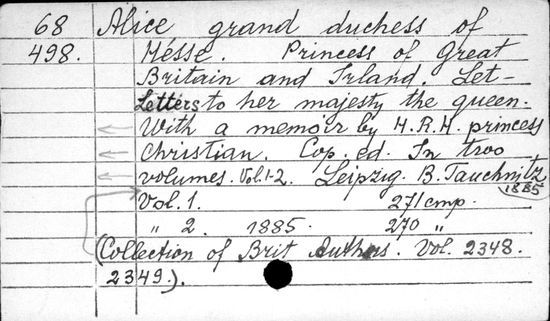 68 Alice grand duchess of
498. Hesse. Princess of Great
Britain and Irland. Let-
Letters to her majesty the queen.
With a memoir by H.R.H. princess
Christian. Cop. ed. In two
volumes. Vol.1-2. Leipzig. B. Tauchnitz
1885
Vol. 1. 271 стр.
„ 2. 1885. 270 „
(Collection of Brit Authors. Vol. 2348.
2349.).